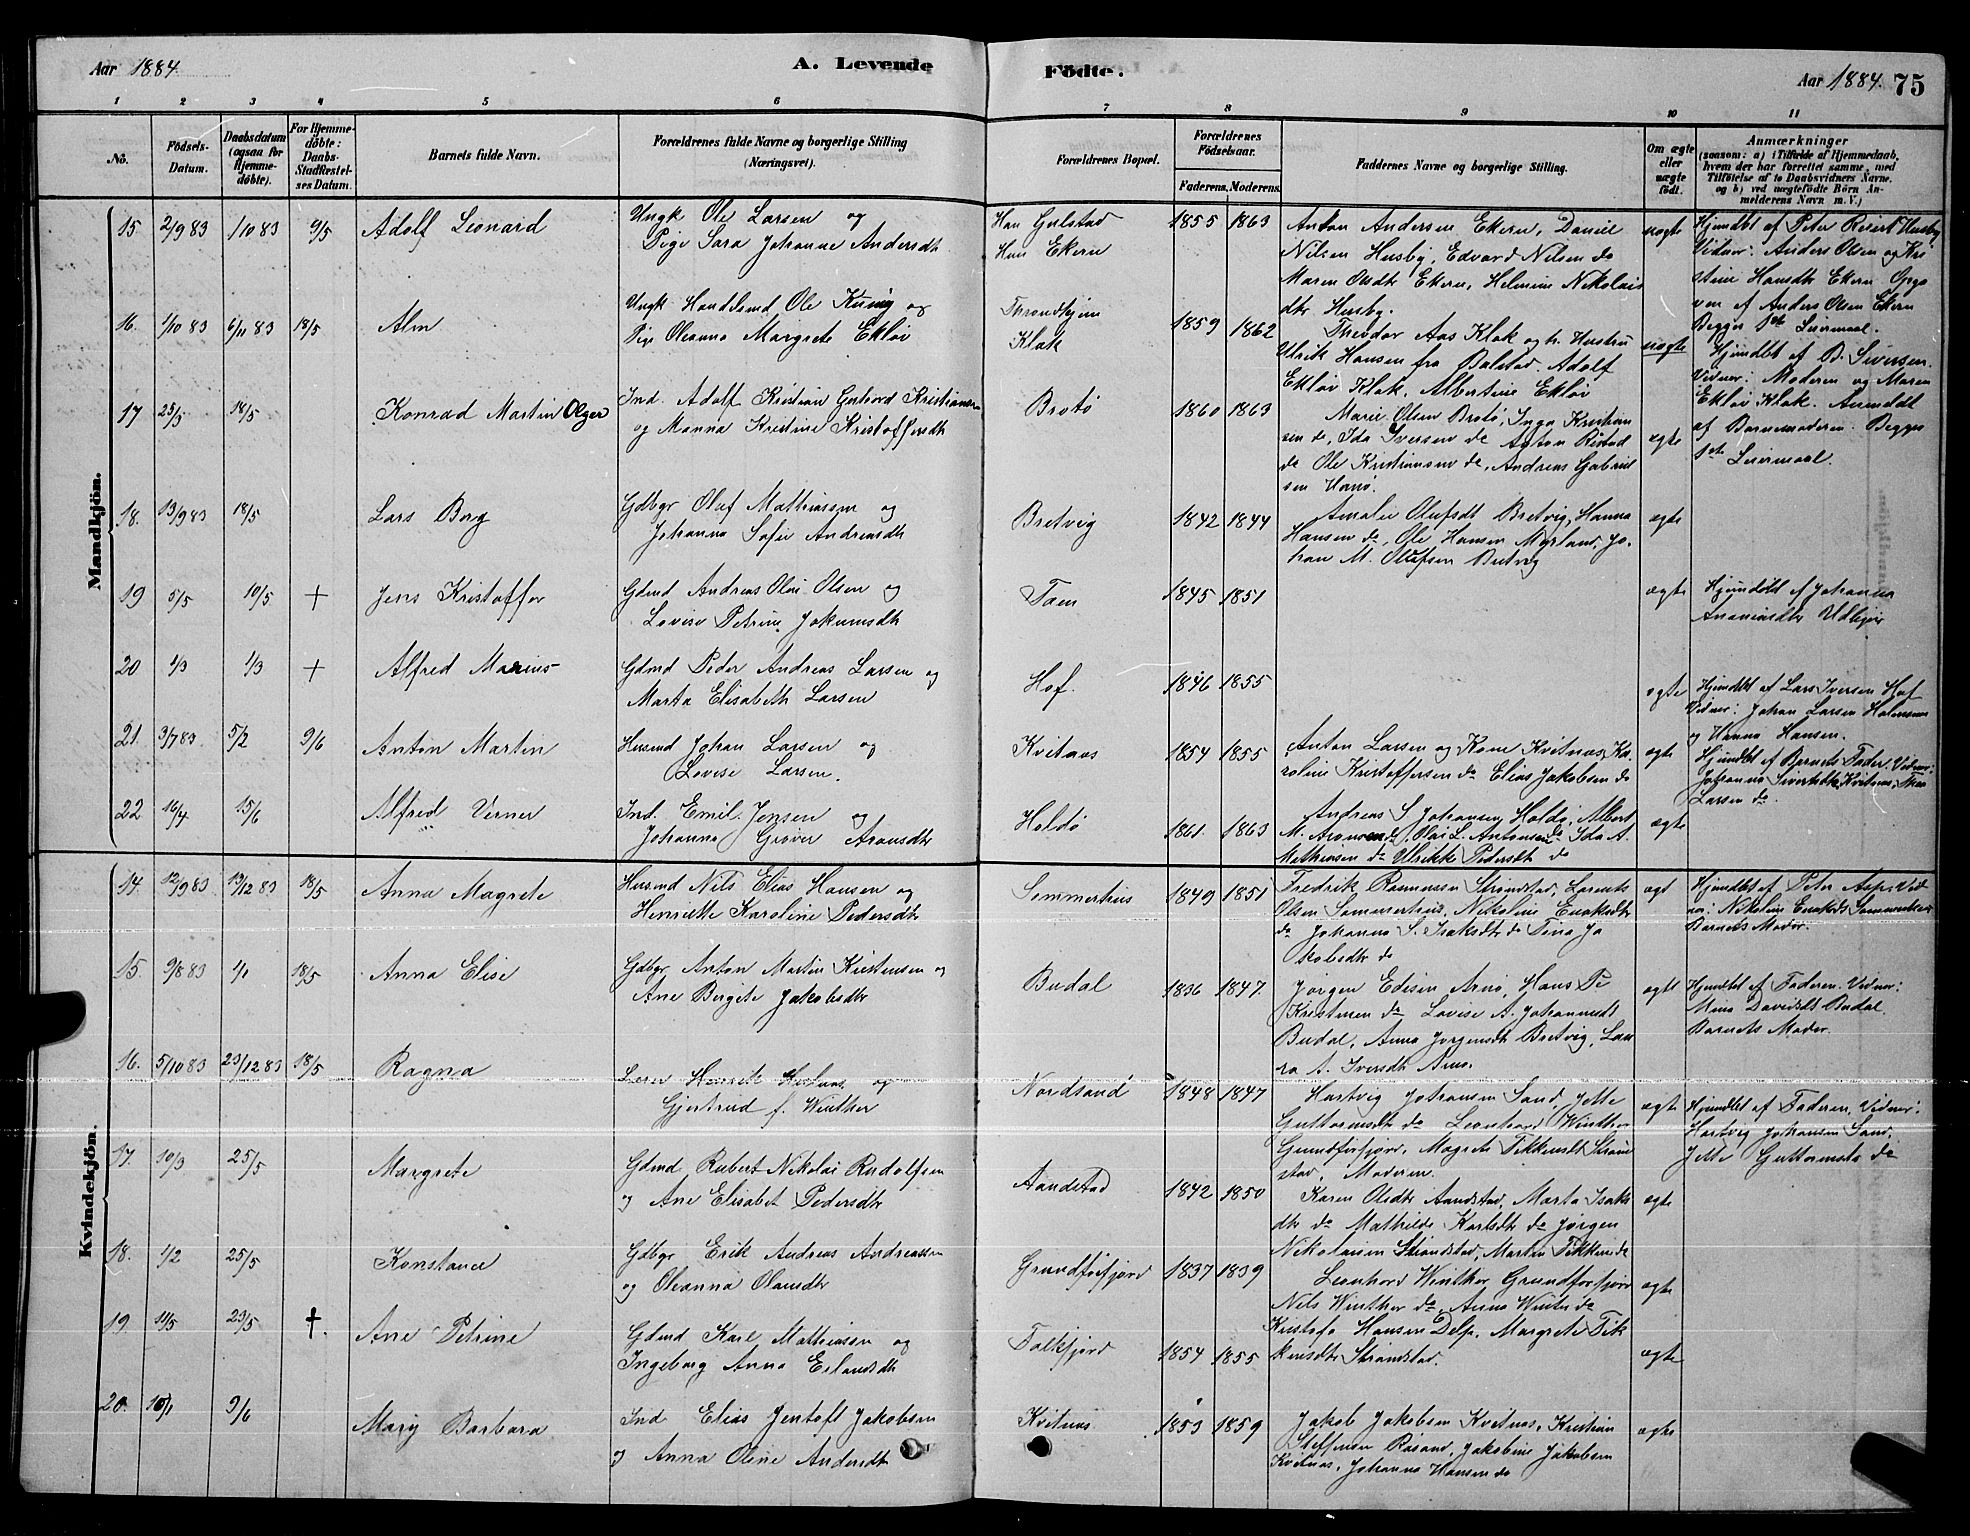 Aar 1884.
A. Levende
Födte.
Aar 1884. 75
1 2 3 4 5 6 7 8 9 10 11
No.
Födsels-
Datum.
Daabsdatum
(ogsaa for
Hjemme-
döbte).
For Hjemme-
döbte:
Daabs-
Stadfæstel-
ses Datum.
Barnets fulde Navn.
Forældrenes fulde Navne og borgerlige Stilling
(Næringsvei).
Forældrenes Bopæl.
Forældrenes
Födselsaar.
Faderens. Moderens.
Faddernes Navne og borgerlige Stilling.
Om ægte
eller
uægte
födt.
Anmærkninger
(saasom: a) i Tilfælde af Hjemmedaab,
hvem der har forrettet samme, med
Tilföielse af to Daabsvidners Navne,
og b) ved uægtefödte Börn An-
melderens Navn m. V.)
Mandkjön.
15. 2/9 83 1/10 83 9/5 Adolf Leonard
Ungk Ole Larsen og
Pige Sara Johanne Andersdt
Han Gulstad
Hun Ekern
1855 1863
Anton Andersen Ekern, Daniel
Nilsen Husby, Edvard Nilsen do
Maren Olsdt Ekern, Helmine Nikolais
dtr Husby.
uægte
Hjemdbt af Peter Husby
Vidner: Anders Olsen og Kri
stine Hansdt Ekern Opgi
ven af Anders Olsen Ekern
Begges 1ste Leiermaal.
16. 1/10 83 6/11 83 18/5 Alm
Ungk Handelsmd Ole og
Pige Oleanna Margrete Ekløv
Throndhjem
Klak
1859 1862
Theodor Aas Klak og h. Hustru
Ulrik Hansen fra Balstad. Adolf
Ekløv Klak, Albertine Ekløv
uægte
Hjemdbt af B. Sivertsen
Vidner: Moderen og Maren
Ekløv Klak. Anmeldt
af Barnemoderen. Begges
1ste Leiermaal.
17 25/3 18/5 Konrad Martin Olger
Ind. Adolf Kristian Kristiansen
og Manna Kristine Kristoffersdt
Brotö
1860 1863
Marie Olsen Brotö, Inga Kristian
sen do, Ida Iversen do, Anton do Ole Kristiansen do, Andreas Gabriel
sen Hanö.
ægte
18. 13/9 83 18/5 Lars Borg
Gdbgr Oluf Mathiassen og
Johanna Sofie Andreasdt
Bretvig
1842 1844
Amalie Olufsdt Bretvig, Hanna
Hansen do, Ole Hansen Myrland, Jo-
han M. Olafsen Bretvig
ægte
19 5/5 10/5 + Jens Kristoffer
Gdmd Andreas Olai Olsen og
Lovise Petrine Jokumsdt
1845 1851
ægte
Hjemdöbt af Johanna
Ananiasdtr
20 1/3 1/3 + Alfred Marius
Gdmd Peder Andreas Larsen og
Marta Elisabeth Larsen
Hof.
1846 1855
ægte
Hjemdbt af Lars Iversen Hof
Vidner: Johan Larsen
og Hanna Hansen.
21. 3/7 83. 5/2 9/6 Anton Martin
Husmd Johan Larsen og
Lovise Larsen.
Kvitnes
1854 1855
Anton Larsen og Kone Kvitnes, Ka-
roline Kristoffersen do Elias Jakobsen do
ægte
Hjemdbt af Barnets Fader. Vidner:
Johanna Kvitnes,
Larsen do.
22 16/4 15/6 Alfred Verner
Ind. Emil Jensen og
Johanna Gröver Aronsdtr
Holdö
1861. 1863
Andreas S Johansen Holdö, Albert
M. Aronsen do, Olai L. Antonsen do Ida A.
Mathiasen do Ulrikke Pedersdt do
ægte
Kvindekjön.
14. 12/9 83 13/12 83 18/5 Anna Magrete
Husmd Nils Elias Hansen og
Henriette Karoline Pedersdt
Sommerhus
1849 1851
Fredrik Rasmussen Strandstad, Lorents
Olsen Sommerhus, Nikoline Enoksdtr
do Johanna S. Isaksdtr do Tina Ja
kobsdtr do
ægt
Hjemdbt af Peter Vid
ner: Nikoline Enoksdt Sommerhus
Barnets Moder.
15. 9/8 83 4/1 18/5 Anna Elise
Gdbgr Anton Martin Kristensen og
Ane Bergite Jakobsdtr
Budal
1836 1847.
Jørgen Edisen Arnö, Hans Pe
Kristensen do Lovise A. Johannesdt
Budal, Anna Jørgensdt Bretvig, Lau
ra A. Iversdt Arnö.
ægte
Hjemdbt af Faderen. Vidner:
Davidsdt Budal
Barnets Moder.
16. 5/10 83 23/12 83 18/5 Ragna
Lærer Henrik og
Gjertrud f. Winther
Nordsand
1848 1847
Hartvig Johansen Sand, Jette
Guttormsdt do Leonhard Winther
Grundforfjord, Magrete Tikkensdt Strand
stad, Moderen.
ægte
Hjemdbt af Faderen. Vidner:
Hartvig Johansen Sand,
Jette Guttormsdt do
17. 10/3 25/5 Margrete
Gdmd Rubert Nikolai Rudolfsen
og Ane Elisabet Pedersdtr
Aandstad
1842 1850
Karen Olsdtr Aandstad, Marta Isaks
dtr do Mathilde Karlsdtr do Jørgen
Nikolaisen Strandstad, Martin Tikken do
ægte
18. 1/2 25/5 Konstance
Gdbgr Erik Andreas Andreassen
og Oleanna Olausdtr
Grundforfjord
1837 1839
Leonhard Winther Grundforfjord
Nels Winther do, Anna Winter do
Kristofa Hansen Delp, Margrete Tik
kensdtr Strandstad.
ægte
19. 11/5 23/5 +. Ane Petrine
Gdmd Karl Mathiassen og
Ingeborg Anna Erlandsdt
Falkfjord
1854 1855
ægte
20. 10/1 9/6 Mary Barbara
Ind Elias Jentoft Jakobsen
og Anna Oline Andersdt
Kvitnes
1853 1859
Jakob Jakobsen Kvitnes, Kristian
Steffensen Røsand, Jakobine Jakobsen
Kvitnes, Johanna Hansen do
ægte